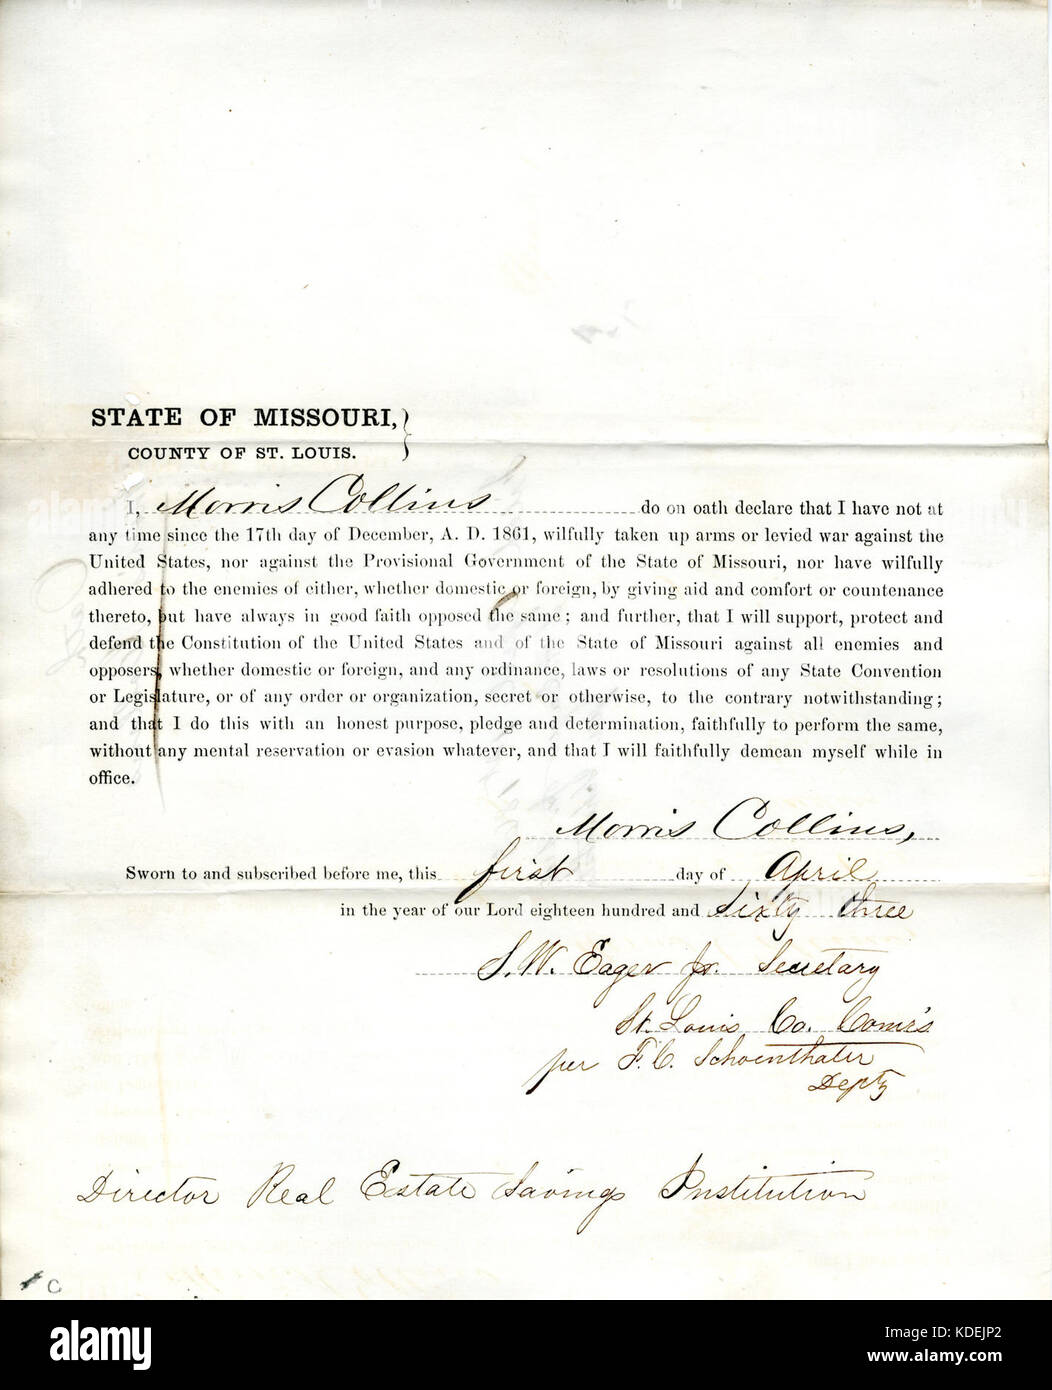 STATE OF MISSOURI,
COUNTY OF ST. LOUIS.
I, Morris Collins do on oath declare that I have not at
any time since the 17th day of December, A. D. 1861, wilfully taken up arms or levied war against the
United States, nor against the Provisional Government of the State of Missouri, nor have wilfully
adhered to the enemies of either, whether domestic or foreign, by giving aid and comfort or countenance
thereto, but have always in good faith opposed the same; and further, that I will support, protect and
defend the Constitution of the United States and of the State of Missouri against all enemies and
opposers, whether domestic or foreign, and any ordinance, laws or resolutions of any State Convention
or Legislature, or of any order or organization, secret or otherwise, to the contrary notwithstanding;
and that I do this with an honest purpose, pledge and determination, faithfully to perform the same,
without any mental reservation or evasion whatever, and that I will faithfully demean myself while in
office.
Morris Collins,
Sworn to and subscribed before me, this first day of April
in the year of our Lord eighteen hundred and sixty three
S. W. Eager Jr. Secretary
St. Louis Co. Comrs
per F. C. Schoenthaler
Depty
Director Real Estate Savings Institution
c
alamy
Image ID: KDEJP2
www.alamy.com